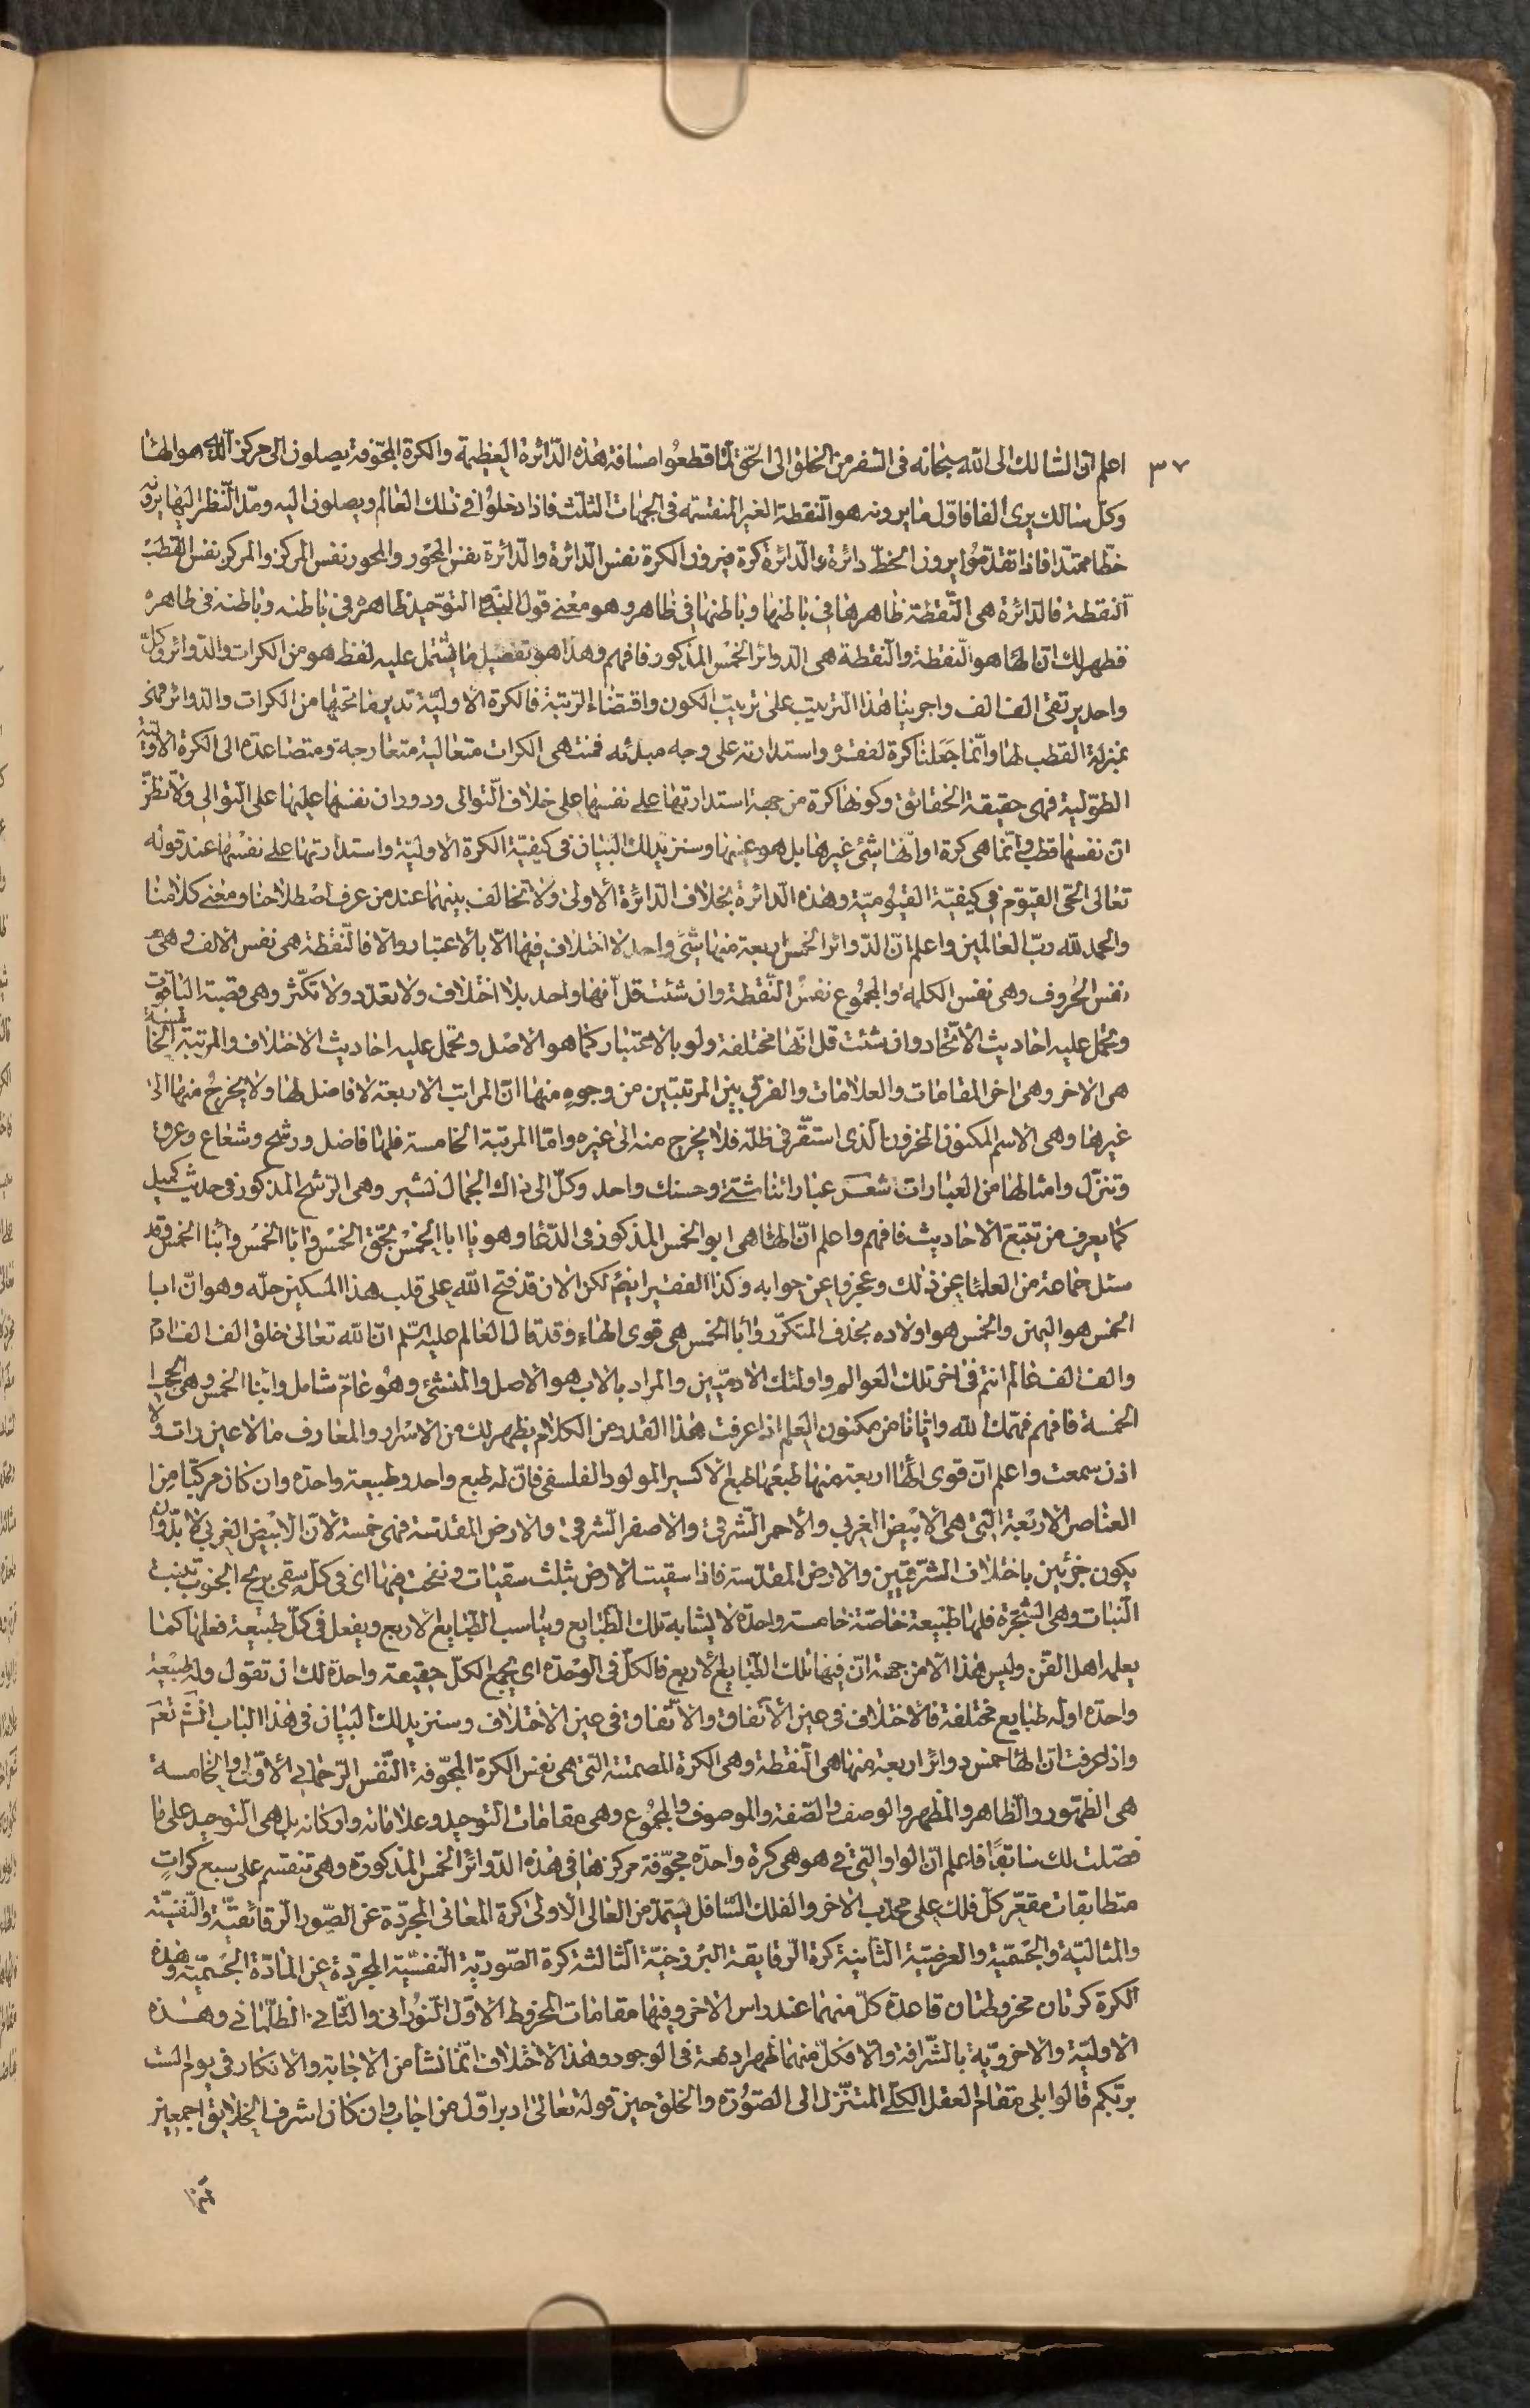 ٣٧
اعلم ان السالك الى الله سبحانه فى السفر من الخلق الى الحق لما قطعوا مسافة هذه الدائرة العظيمة والكرة المجوّفة يصلون الى مركز هو الهاء
وكل سالك يرى الفا فاوّل ما يرونه هو النقطة الغير المنقسمة فى الجهات الثلث فاذا دخلوا فى ذلك العالم ويصلون اليه ومدّ النّظر اليها يرونه
خطّا ممتدا فاذا تقدّموا يرون الخطّ دائرة والدّائرة كرة فيرون الكرة نفس الدّائرة والدّائرة نفس المحور والمحور نفس المركز والمركز نفس القطب
النقطة فالدّائرة هى النّقطة ظاهرها فى باطنها وباطنها فى ظاهر وهو معنى قول التوحيد ظاهره فى باطنه وباطنه فى ظاهره
فظهر لك انّ الهاء هو النّقطة والنّقطة هى الدوائر الخمس المذكور فافهم وهذا هو تفصيل ما يشتمل عليه لفظ هو من الكرات والدّوائر وكلّ
واحد يرتقى الف الف واجرينا هذا الترتيب على ترتيب الكون واقتضاء الرتبة فالكرة الاوليّة تدير ما تحتها من الكرات والدوائر
بمنزلة القطب لها وانّما جعلنا كرة لفقره واستدارته على وجه مبدئه فمنتهى الكرات متعالية متعارجة ومتصاعدة الى الكرة الاوليّة
الطوّليّة فهى حقيقة الحقائق وكونها كرة من جهة استدارتها على نفسها على خلاف التّوالى ودوران نفسها عليها على التّوالى ولا تظنّ
انّ نفسها قطب وانّما هى كرة او انّها شئ غيرها بل هو عينها وسنزيد لك البيان فى كيفيّة الكرة الاوليّة واستدارتها على نفسها عند قوله
تعالى الحّى القيوّم فى كيفيّة القيّوميّة وهذه الدائرة بخلاف الدّائرة الاولى ولا تخالف بينهما عند من عرف اصطلاحنا ومعنى كلامنا
والحمد لله ربّ العالمين واعلم انّ الدّوائر الخمس اربعة منها شئ واحد لا اختلاف فيها الّا بالاعتبار والا فالنّقطة هى نفس الالف وهى
نفس الحروف وهى نفس الكلمة والمجموع نفس النّقطة وان شئت قل انّها واحد بلا اختلاف ولا تعدّد ولا تكثّر وهى قصبة الياقوت
وتحمل عليه احاديث الاتّحاد وان شئت قل انّها مختلفة ولو بالاعتبار كما هو الاصل وتحمل عليه احاديث الاختلاف والمرتبة الخامسة
هى الاخر وهى اخر المقامات والعلامات والفرق بين المرتبتين من وجوه منها انّ المراتب الاربعة لا فاضل لها ولا يخرج منها الى
غيرها وهى الاسم المكنون المخزون الّذى استقّر فى ظلّه فلا يخرج منه الى غيره وامّا المرتبة الخامسة فلها فاضل ورشح وشعاع وعرق
وتنزّل وامثالها من العبارات شعر عباراتنا شتّى وحسنك واحد وكلّ الى ذاك الجمال نشير وهى الرّشح المذكور فى حديث كميل
كما يعرف من تتبّع الاحاديث فافهم واعلم انّ الهاء هى ابو الخمس المذكور فى الدّعا وهو يا ابا الخمس بحقّ الخمس وابا الخمس وابنا الخمس وقد
سئل جماعة من العلماء عن ذلك وعجزوا عن جوابه وكذا الفقير ايضا لكن الان قد فتح الله على قلب هذا المسكين حلّه وهو انّ ابا
الخمس هو اليمن والخمس هو اولاده بحذف المتكرّر وابا الخمس هى قوى الهاء وقد قال العالم عليه السّلم انّ الله تعالى خلق الف الف ادم
والف الف عالم انتم فى اخر تلك العوالم واولئك الادميّين والمراد بالاب هو الاصل والمنشئ وهو عامّ شامل وابنا الخمس وهى
الخمسة فافهم فهّمك الله وايّانا من مكنون العلم اذا عرفت هذا القدر من الكلام يظهر لك من الاسرار والمعارف ما لا عين رات ولا
اذن سمعت واعلم انّ قوى الهاء اربعة منها طبعها طبع الاكسير المولود الفلسفى فانّ له طبع واحد وطبيعة واحدة وان كان مركّبا من
العناصر الاربعة التى هى الابيض الغربى والاحمر الشّرقى والاصفر الشّرقى والارض المقدّسة فهى خمسة لانّ الابيض الغربى لا بدّ وان
يكون جزئين باختلاف الشّرقيّين والارض المقدّسة فاذا سقيت الارض بثلث سقيات ونفخت فيها اى فى كل سقى بريح الجنوب تنبت
النّبات وهى الشّجرة فلها طبيعة خاصّة خامسة واحدة لا يشابه تلك الطّبايع ويناسب الطّبايع الاربع ويفعل فى كلّ طبيعة فعلها كما
يعلمه اهل الفّن وليس هذا الّا من جهة انّ فيها تلك الطّبايع الاربع فالكلّ فى الوحدة اى بجمع الكلّ حقيقة واحدة لك ان تقول وله طبيعة
واحدة او له طبايع مختلفة فالاختلاف فى عين الاتّفاق والاتّفاق فى عين الاختلاف وسنزيد لك البيان فى هذا الباب
واذا عرفت انّ الهاء خمس دوائر اربعة منها هى النّقطة وهى الكرة المصمتة التى هى نفس الكرة المجوّفة النّفس الرّحمانى الاوّل والخامسة
هى الظّهور والظّاهر والمظهر والوصف والصّفة والموصوف والمجموع وهى مقامات التّوحيد وعلاماته واركانه بل هى التّوحيد على ما
فصّلت لك سابقًا فاعلم انّ الواو التى فى هو هى كرة واحدة مجوّفة مركزها فى هذه الدّوائر الخمس المذكورة وهى تنقسم على سبع كرات
متطابقات مقعّر كلّ فلك على محدّب الاخر والفلك السّافل يستمدّ من العالى الاولى كرة المعانى المجرّدة عن الصّور الرقائقيّة والنّفسيّة
والمثاليّة والجسّميّة والعرضيّة الثّانية كرة الرقايقة البرزخيّة الثّالثة كرة الصّوريّة النّفسيّة المجرّدة عن المادّة الجسّميّة وهذه
الكرة كرتان مخروطتان قاعدة كلّ منهما عند راس الاخر وفيها مقامات المخروط الاوّل النّورانى والثّانى الظّلمانى وهذه
الاوليّة والاخرويّة بالشّرافة والّا فكلّ منهما ظهرا دفعة فى الوجود وهذا الاختلاف انّما نشأ من الاجابة والانكار فى يوم الست
بربّكم قالوا بلى مقام العقل الكلّى المتنزّل الى الصّورة والخلق حين قوله تعالى ادبر اوّل من اجاب وان كان اشرف الخلايق اجمعين